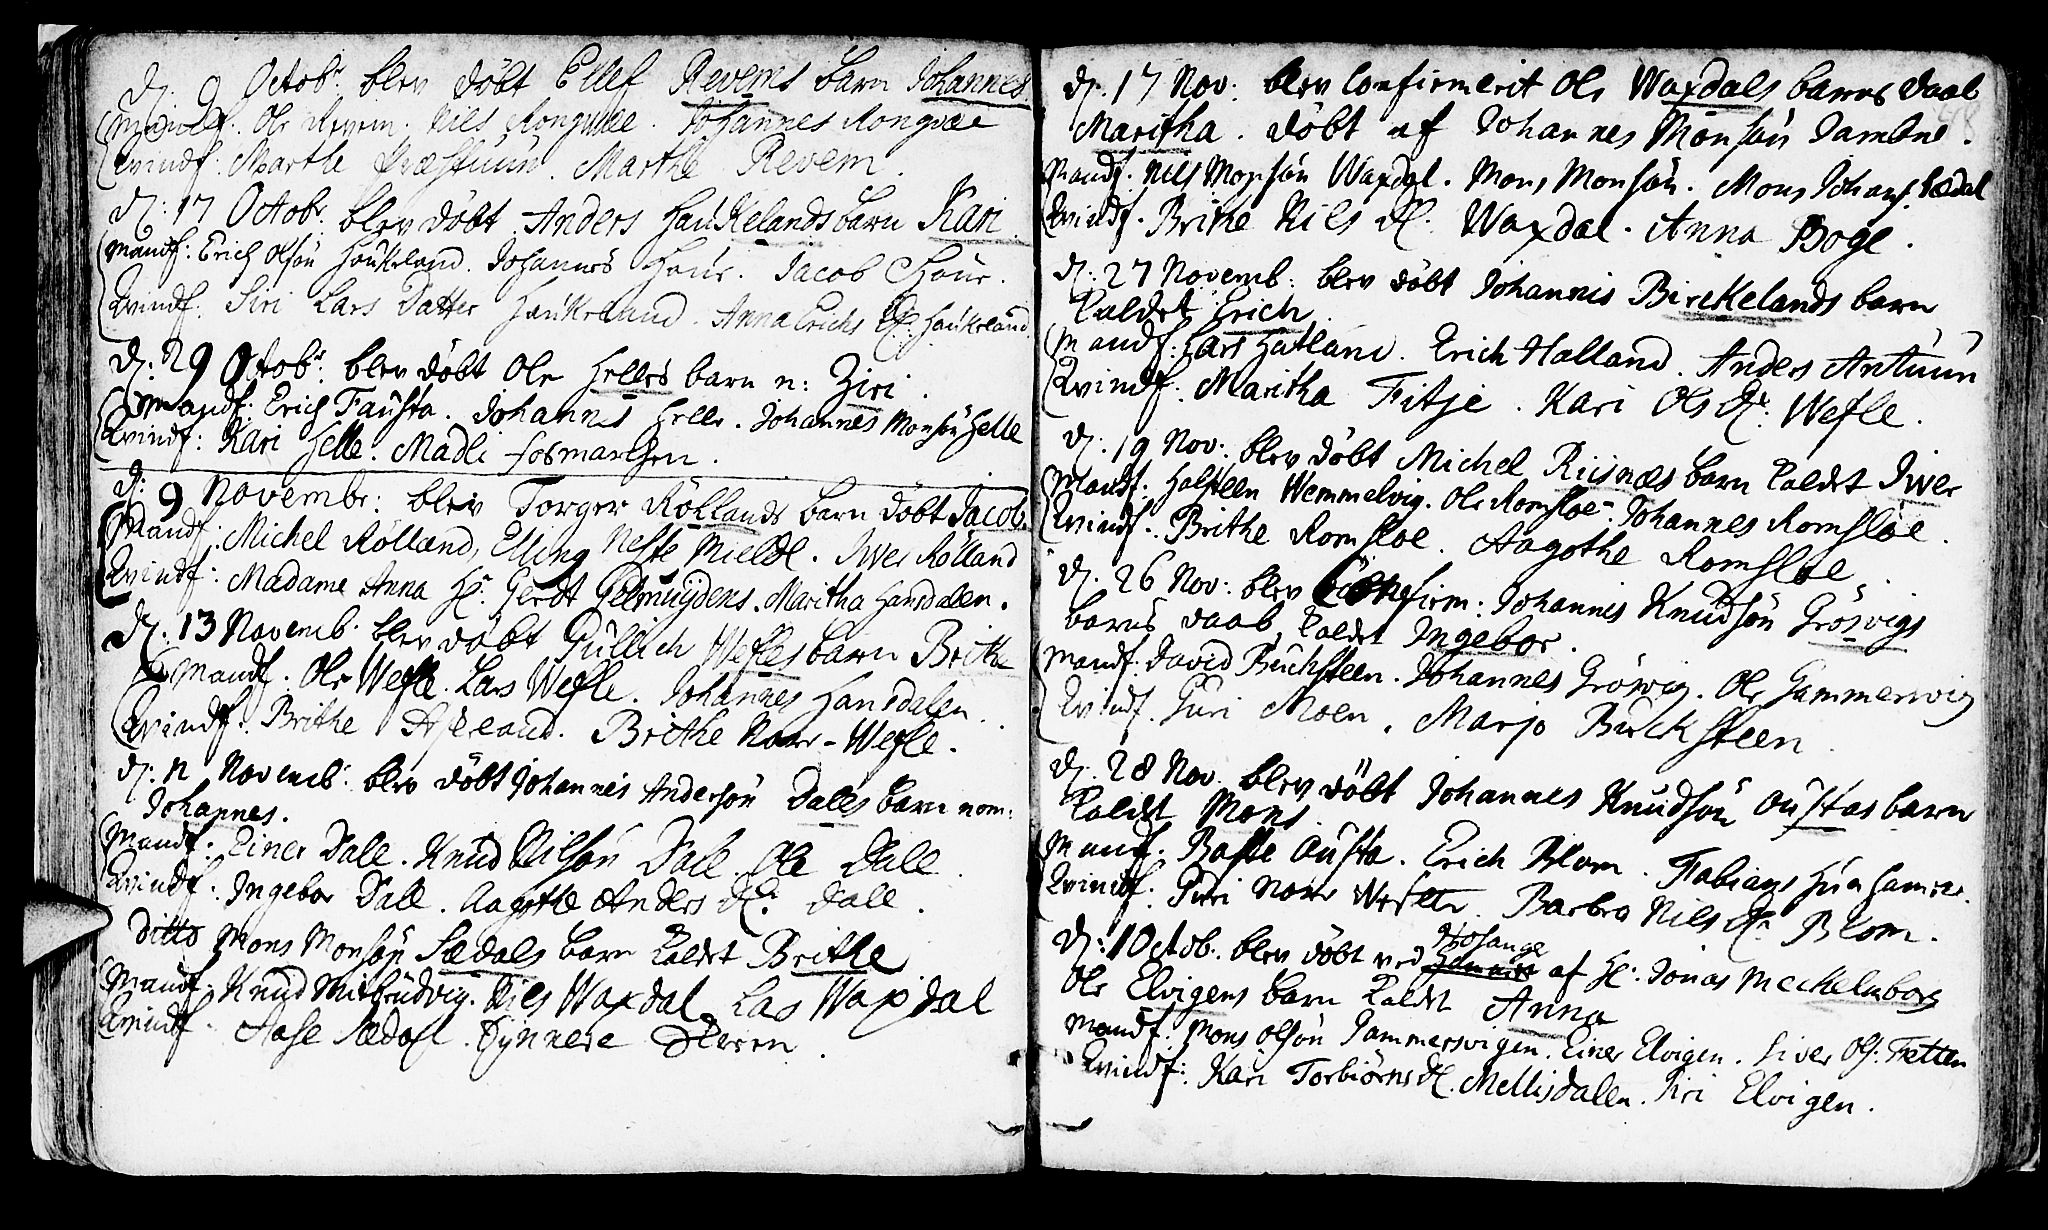 D. 9 Octobr. blev döbt Ellef Revems barn Johannes
Mandf. Ole Revem. Nils Rongvæe. Johannes Rongvæe
Qvindf: Marthe Præstuun. Marthe Revem.
D: 17 Octobr. blev döbt Anders Haukelands barn Kari.
Mandf: Erich Olsön Haukeland. Johannes Hour. Jacob Hour.
Qvindf. Siri Lars Datter Haukeland. Anna Erichs D. Haukeland
D: 29 Octobr. blev döbt Ole Helles barn n: Ziri.
Mandf: Erich Fausta. Johannes Helle. Johannes Monsön Helle
Qvindf: Kari Helle. Madli Fosmarchen.
D: 9 Novembr: blev Torger Röllands barn döbt Jacob.
Mandf: Michel Rölland, Elling Neste Mieldl. Iver Rölland
Qvindf: Madame Anna Hr. Gerdt Gelmuijdens. Maritha Hansdalen.
D. 13 Novemb. blev döbt Gullich Wefles barn Brithe
Mandf. Ole Wefle. Lars Wefle. Johannes Hansdalen.
Qvindf: Brithe Brithe Nore-Wefle.
D: Novemb: blev döbt Johannes Andersön Dales barn nom:
Johannes.
Mandf: Einer Dale. Knud Nilsön Dale. Ole Dale.
Qvindf: Ingebor Dale. Aagothe Anders D. Dale.
Ditto Mons Monsön Sædals barn kaldet Brithe
Mandf. Knud Mitbrudvig. Nils Waxdal. Las Waxdal
Qvindf. Aase Sædal.
D. 17 Nov: blev Confirmerit Ole Waxdals barns daab
Maritha. döbt af Johannes Monsön Jamtne.
Mandf. Nils Monsön Waxdal. Mons Monsön. Mons Johans. Sædal
Qvindf. Brithe Nils D. Waxdal. Anna Boge.
D: 27 Novemb: blev döbt Johannis Birckelands barn
kaldet Erich.
Mandf: Lars Hatland. Erich Halland. Anders Antuun
Qvindf. Maritha Fitje. Kari Ols D. Wefle.
D. 19 Nov: blev döbt Michel Risnæs barn kaldet Iver
Mandf: Halsteen Wemmelvig. Ole Romsloe. Johannes Romsloe.
Qvindf. Brithe Romsloe. Aagothe Romsloe.
D. 26 Nov: blev Confirm: Johannis Knudsön Grösvigs
barns daab, kaldet Ingebor.
Mandf: David Buchsteen. Johannes Grösvig. Ole Gammersvig
Qvindf. Guri Moen. Marjo Buchsteen.
D. 28 Nov. blev döbt Johannes Knudsön Oustas barn
kaldet Mons.
Mandf. Botle Ousta. Erich Blom. Fabians
Qvindf. Siri Nore Wefle. Barbro Nils D. Blom.
D: 1 Octob. blev döbt ved Hosanger af Hr. Jonas Mechelnborg
Ole Elvigens barn kaldet Anna
Mandf. Mons Olsön Jammersvigen. Einer Elvigen. Siver Ols. Tetten
Qvindf: Kari Torbiörns D. Mellisdalen. Siri Elvigen.